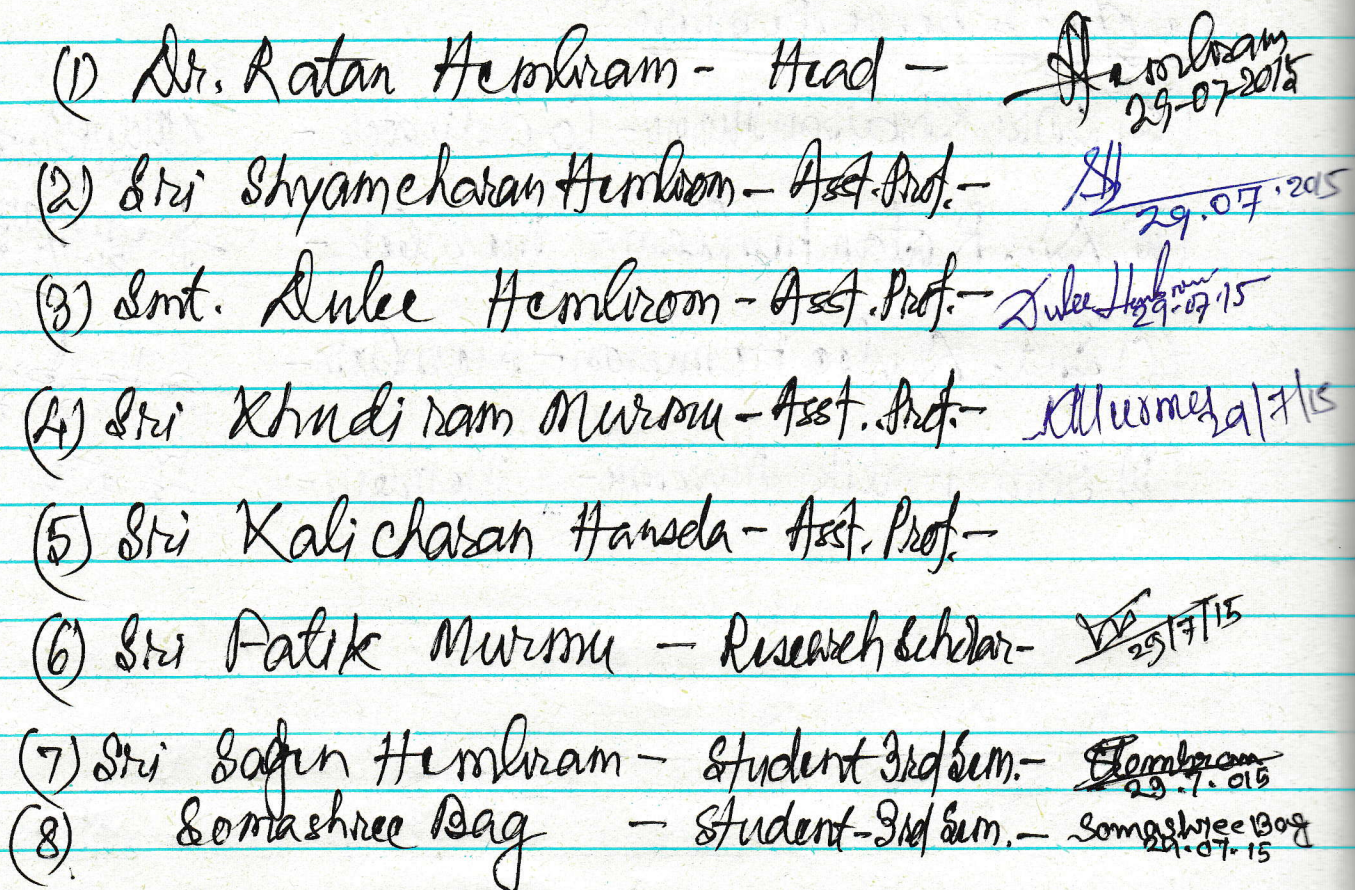 (1) Dr. Ratan Hembram - Head - Hembram 29-07-2015
(2) Sri Shyamcharan Hembrom - Asst. Prof. - 29.07.2015
(3) Smt. Dulee Hembrom - Asst. Prof. - Dulee Hembrom 29.07.15
(4) Sri Khudiram Murmu - Asst. Prof. - KMurmu 29/7/15
(5) Sri Kalicharan Hansda - Asst. Prof. -
(6) Sri Fatik Murmu - Research Scholar - 29/7/15
(7) Sri Hembram - Student 3rd Sem. - Hembram 29.7.015
(8) Somashree Bag - Student - 3rd Sem. - Somashree Bag 29.07.15